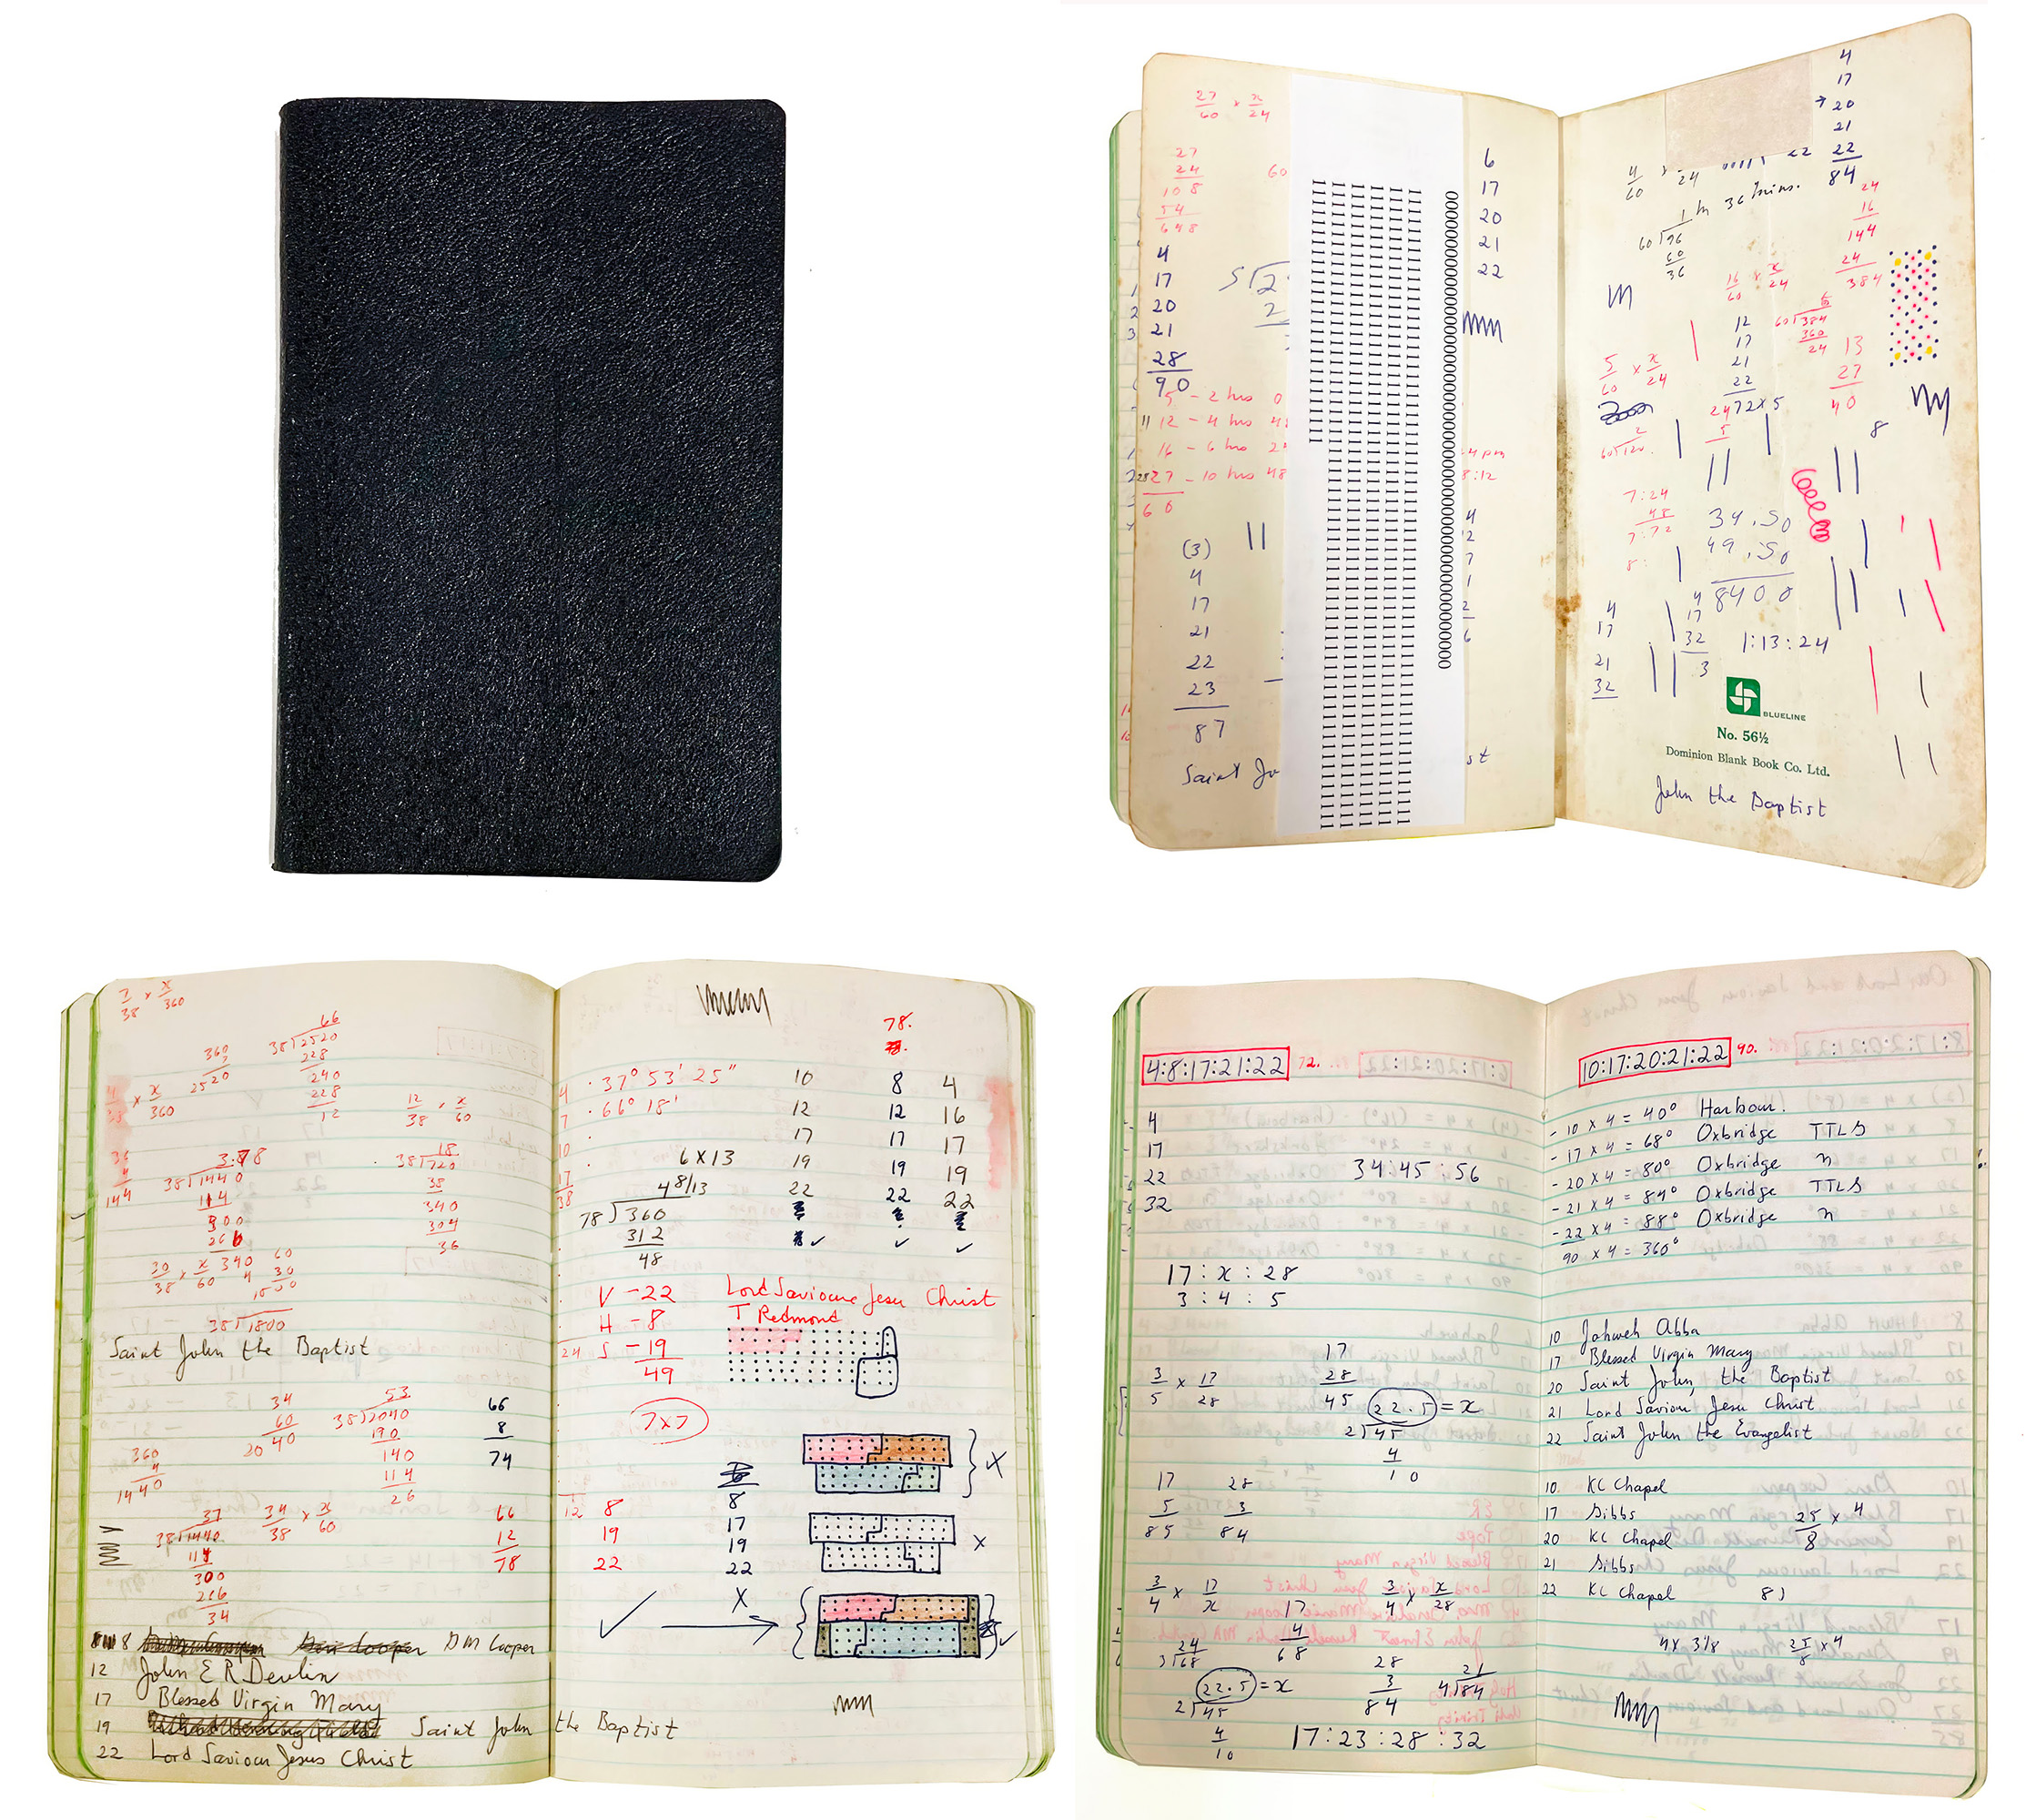 27/60 × x/24
27
24
108
54
648
60
4
17
20
21
28
90
5 - 2 hrs 0
12 - 4 hrs 4
16 - 6 hrs 2
27 - 10 hrs 48
60
(3)
4
17
21
22
23
87
Saint Jo
st
6
17
20
21
22
4 pm
8:12
4
17
20
21
22
84
4/60 × /24
22
1 h 36 mins.
60)96
60
36
24
16
144
24
384
16/60 × x/24
6
60)384
360
24
12
17
21
22
72×5
13
27
40
5/60 × x/24
2
60)120.
24
5
8
7:24
48
7:72
8:
34.50
49.50
8400
4
17
21
32
4
17
32
3
1:13:24
BLUELINE
No. 56½
Dominion Blank Book Co. Ltd.
John the Baptist
7/38 × x/360
360
7
2520
66
38)2520
228
240
228
12
× x/360
12/38 × x/60
18
38)720
38
340
304
36
38)1440
114
300
266
340
30/38 × x/60
60
30
1800
38)1800
Saint John the Baptist
34
60
2040
53
38)2040
190
140
114
26
66
8
74
360
4
1440
37
38)1440
114
300
266
34
34/38 × x/60
66
12
78
8 DM Cooper
12 John E R Devlin
17 Blessed Virgin Mary
19 Saint John the Baptist
22 Lord Saviour Jesus Christ
78.
4 · 37° 53' 25"
7 · 66° 18'
10
17
38
10
12
17
19
22
8
12
17
19
22
4
16
17
19
22
6 X 13
4 8/13
78)360
312
48
V - 22
H - 8
S - 19
49
24
Lord Saviour Jesu Christ
T Redmond
7x7
12
8
19
22
8
17
19
22
X
4:8:17:21:22 72.
4
17
22
32
34:45:56
17 : x : 28
3 : 4 : 5
3/5 × 17/28
17
28
45
22.5 = x
2)45
4
10
17
5
85
28
3
84
3/4 × 17/x
17
4
68
3/4 × x/28
24
3)68
28
3
84
21
4)84
22.5 = x
2)45
4
10
17:23:28:32
10:17:20:21:22 90.
- 10 x 4 = 40° Harbour.
- 17 x 4 = 68° Oxbridge TTLS
- 20 x 4 = 80° Oxbridge n
- 21 x 4 = 84° Oxbridge TTLS
- 22 x 4 = 88° Oxbridge n
90 x 4 = 360°
10 Jahweh Abba
17 Blessed Virgin Mary
20 Saint John, the Baptist
21 Lord Saviour Jesu Christ
22 Saint John the Evangelist
10 KC Chapel
17 Gibbs
20 KC Chapel
21 Gibbs
22 KC Chapel
25/8 × 4
8)
4 x 3 1/8
25/8 × 4